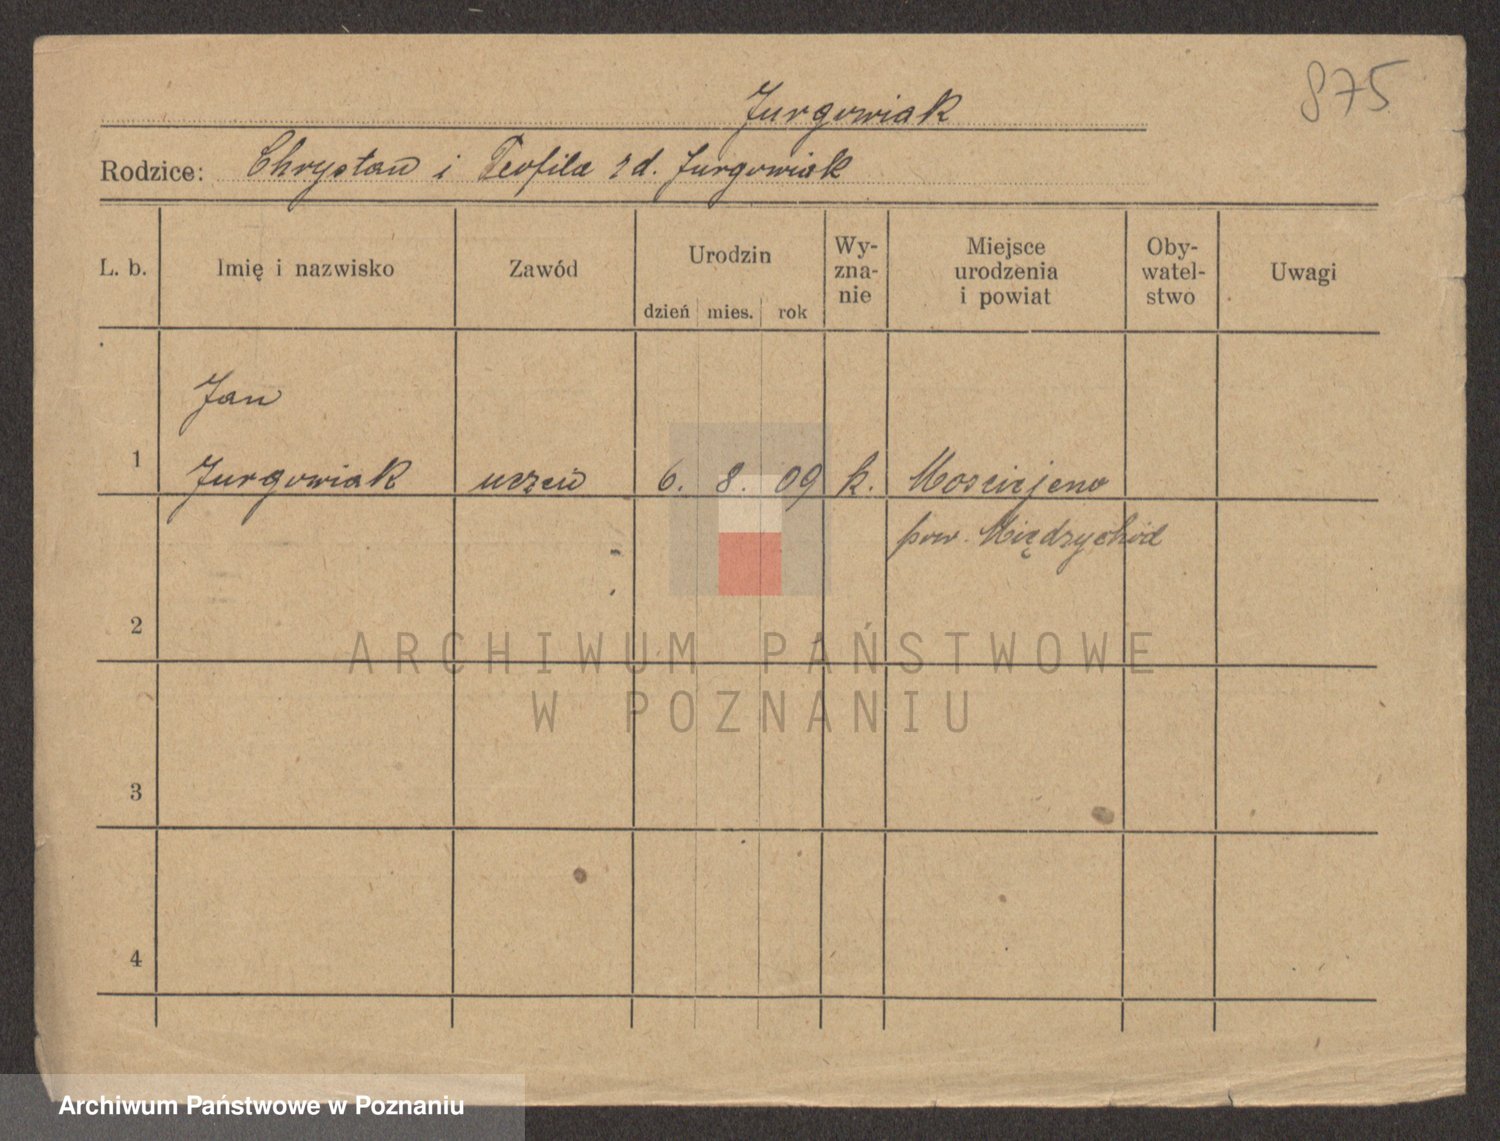 875
Jurgowiak
Rodzice: Chrystan i Teofila zd. Jurgowiak
L. b.
Imię i nazwisko
Zawód
Urodzin
dzień mies. rok
Wy-
zna-
nie
Miejsce
urodzenia
i powiat
Oby-
watel-
stwo
Uwagi
Jan
1 Jurgowiak uczeń 6. 8. 09 k. Mosciejewo
pow. Międzychód
2
ARCHIWUM PAŃSTWOWE
W POZNANIU
3
4
Archiwum Państwowe w Poznaniu